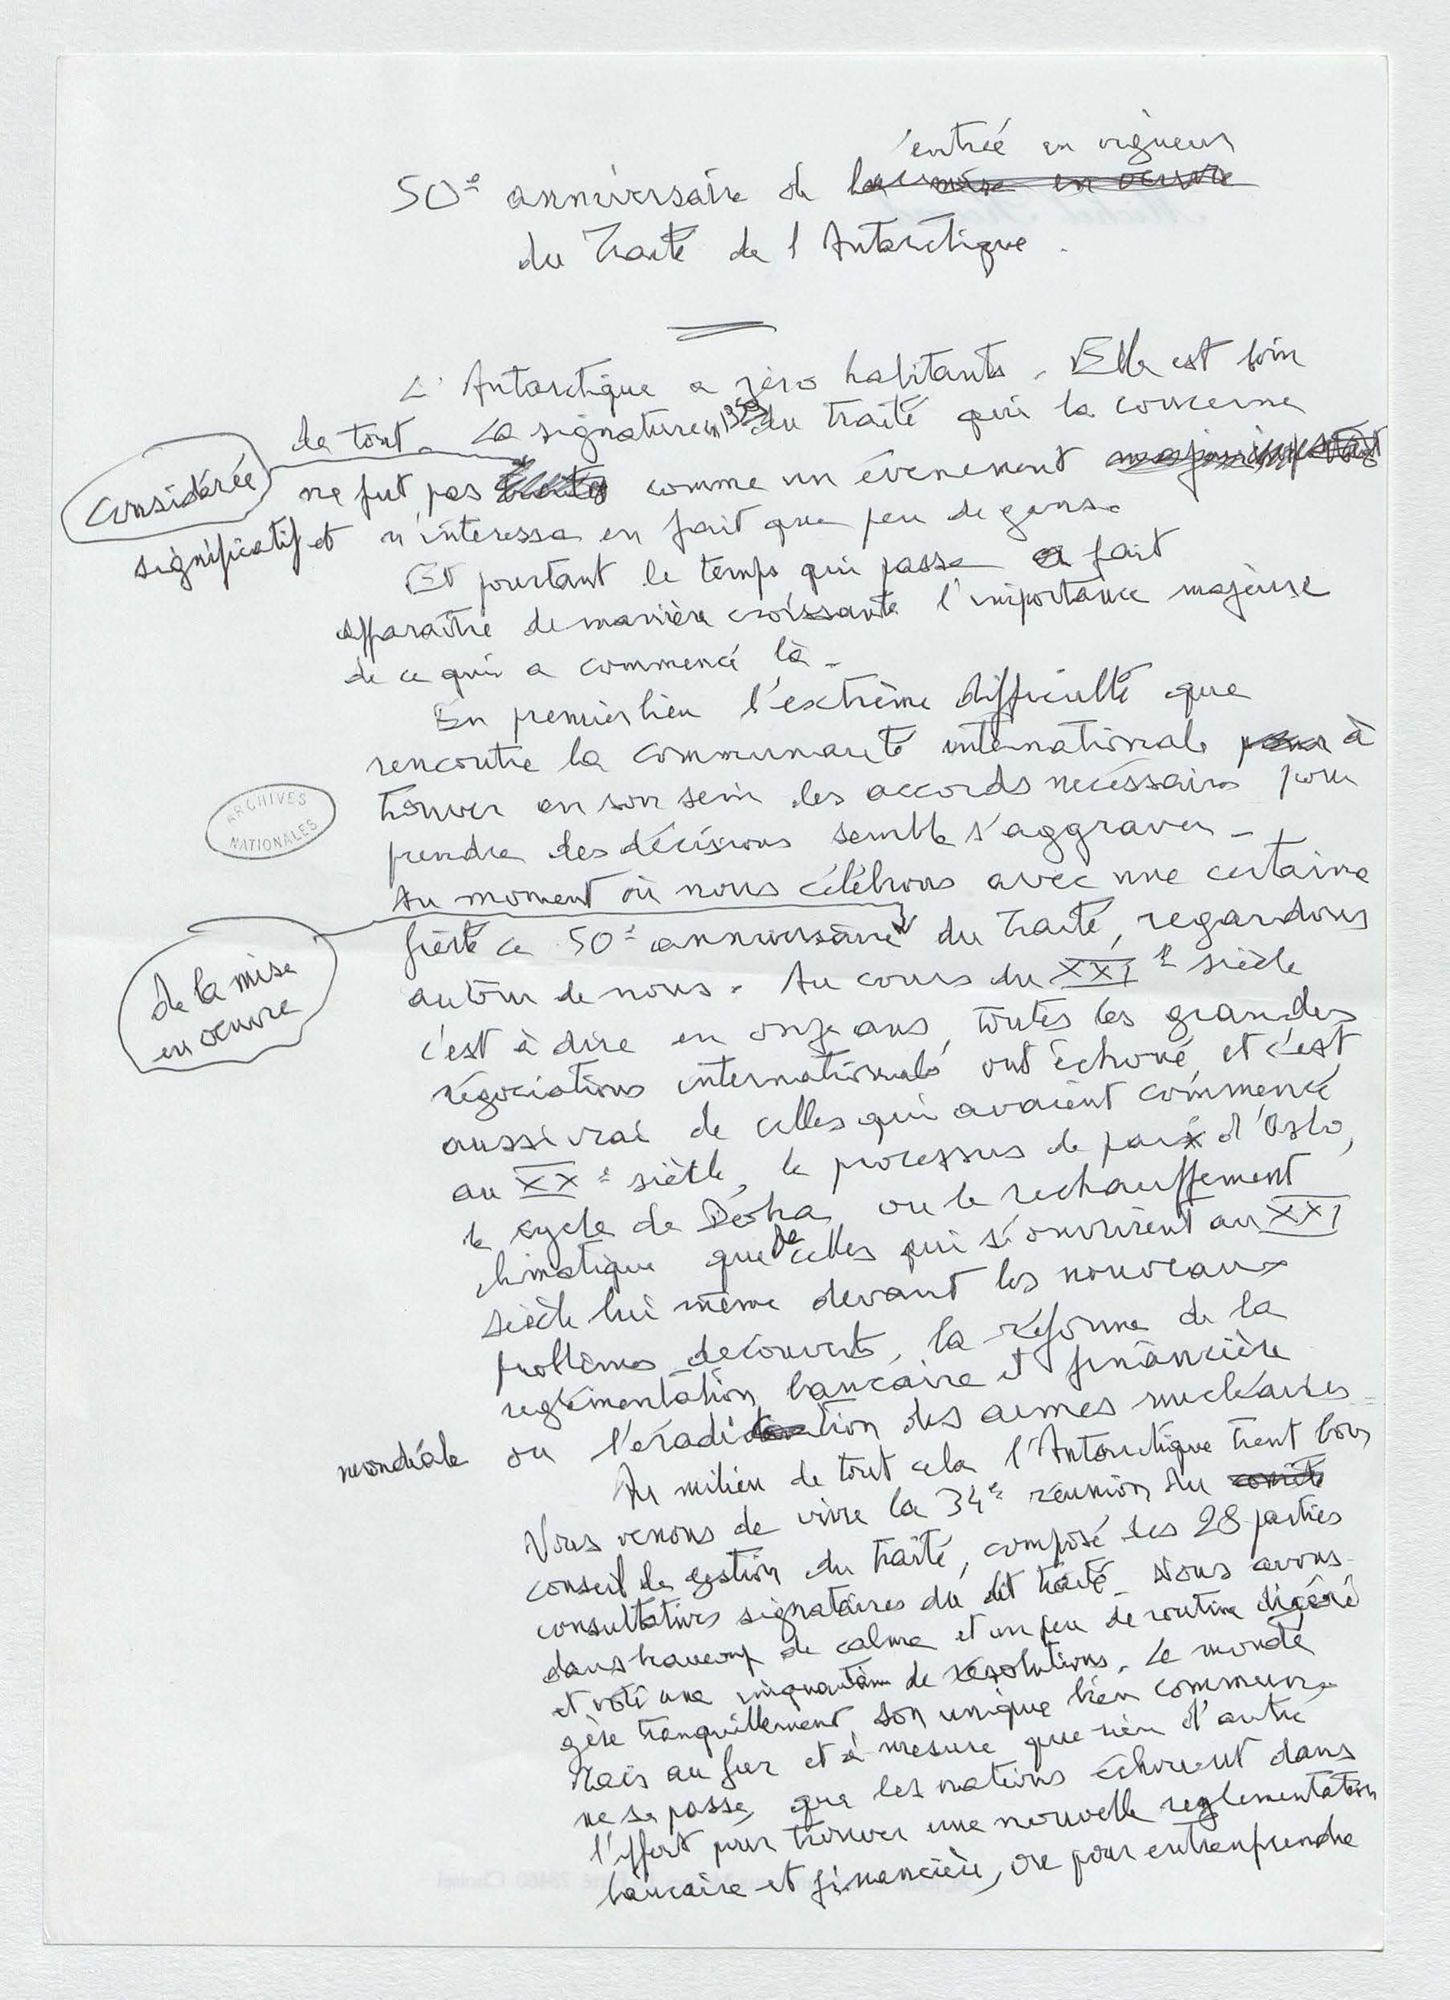 l'entrée en vigueur
50e anniversaire de la mise en oeuvre
du Traité de l'Antarctique.
L'Antarctique a zéro habitants. Elle est loin
de tout. La signature en 1959 du traité qui la concerne
considérée
ne fut pas comme un évènement
significatif et n'intéressa en fait que peu de gens.
Et pourtant le temps qui passe a fait
apparaître de manière croissante l'importance majeure
de ce qui a commencé là.
En premier lieu l'extrême difficulté que
rencontre la communauté internationale pour à
trouver en son sein les accords nécessaires pour
ARCHIVES
NATIONALES
prendre des décisions semble s'aggraver.
Au moment où nous célébrons avec une certaine
fierté ce 50e anniversaire du Traité, regardons
de la mise
en oeuvre
autour de nous. Au cours du XXIe siècle
c'est à dire en onze ans, toutes les grandes
négociations internationales ont échoué, et c'est
aussi vrai de celles qui avaient commencé
au XXe siècle, le processus de paix d'Oslo,
le cycle de Doha, ou le réchauffement
climatique que de celles qui s'ouvrirent au XXI
siècle lui même devant les nouveaux
problèmes découverts, la réforme de la
réglementation bancaire et financière
mondiale ou l'éradication des armes nucléaires
Au milieu de tout cela l'Antarctique tient bon
Nous venons de vivre la 34e réunion du comité
conseil de gestion du traité, composé des 28 parties
consultatives signataires du dit traité. Nous avons
dans beaucoup de calme et un peu de routine digéré
et voté une cinquantaine de résolutions. Le monde
gère tranquillement son unique bien commun.
Mais au fur et à mesure que rien d'autre
ne se passe, que les nations échouent dans
l'effort pour trouver une nouvelle reglementation
bancaire et financière, ou pour entreprendre